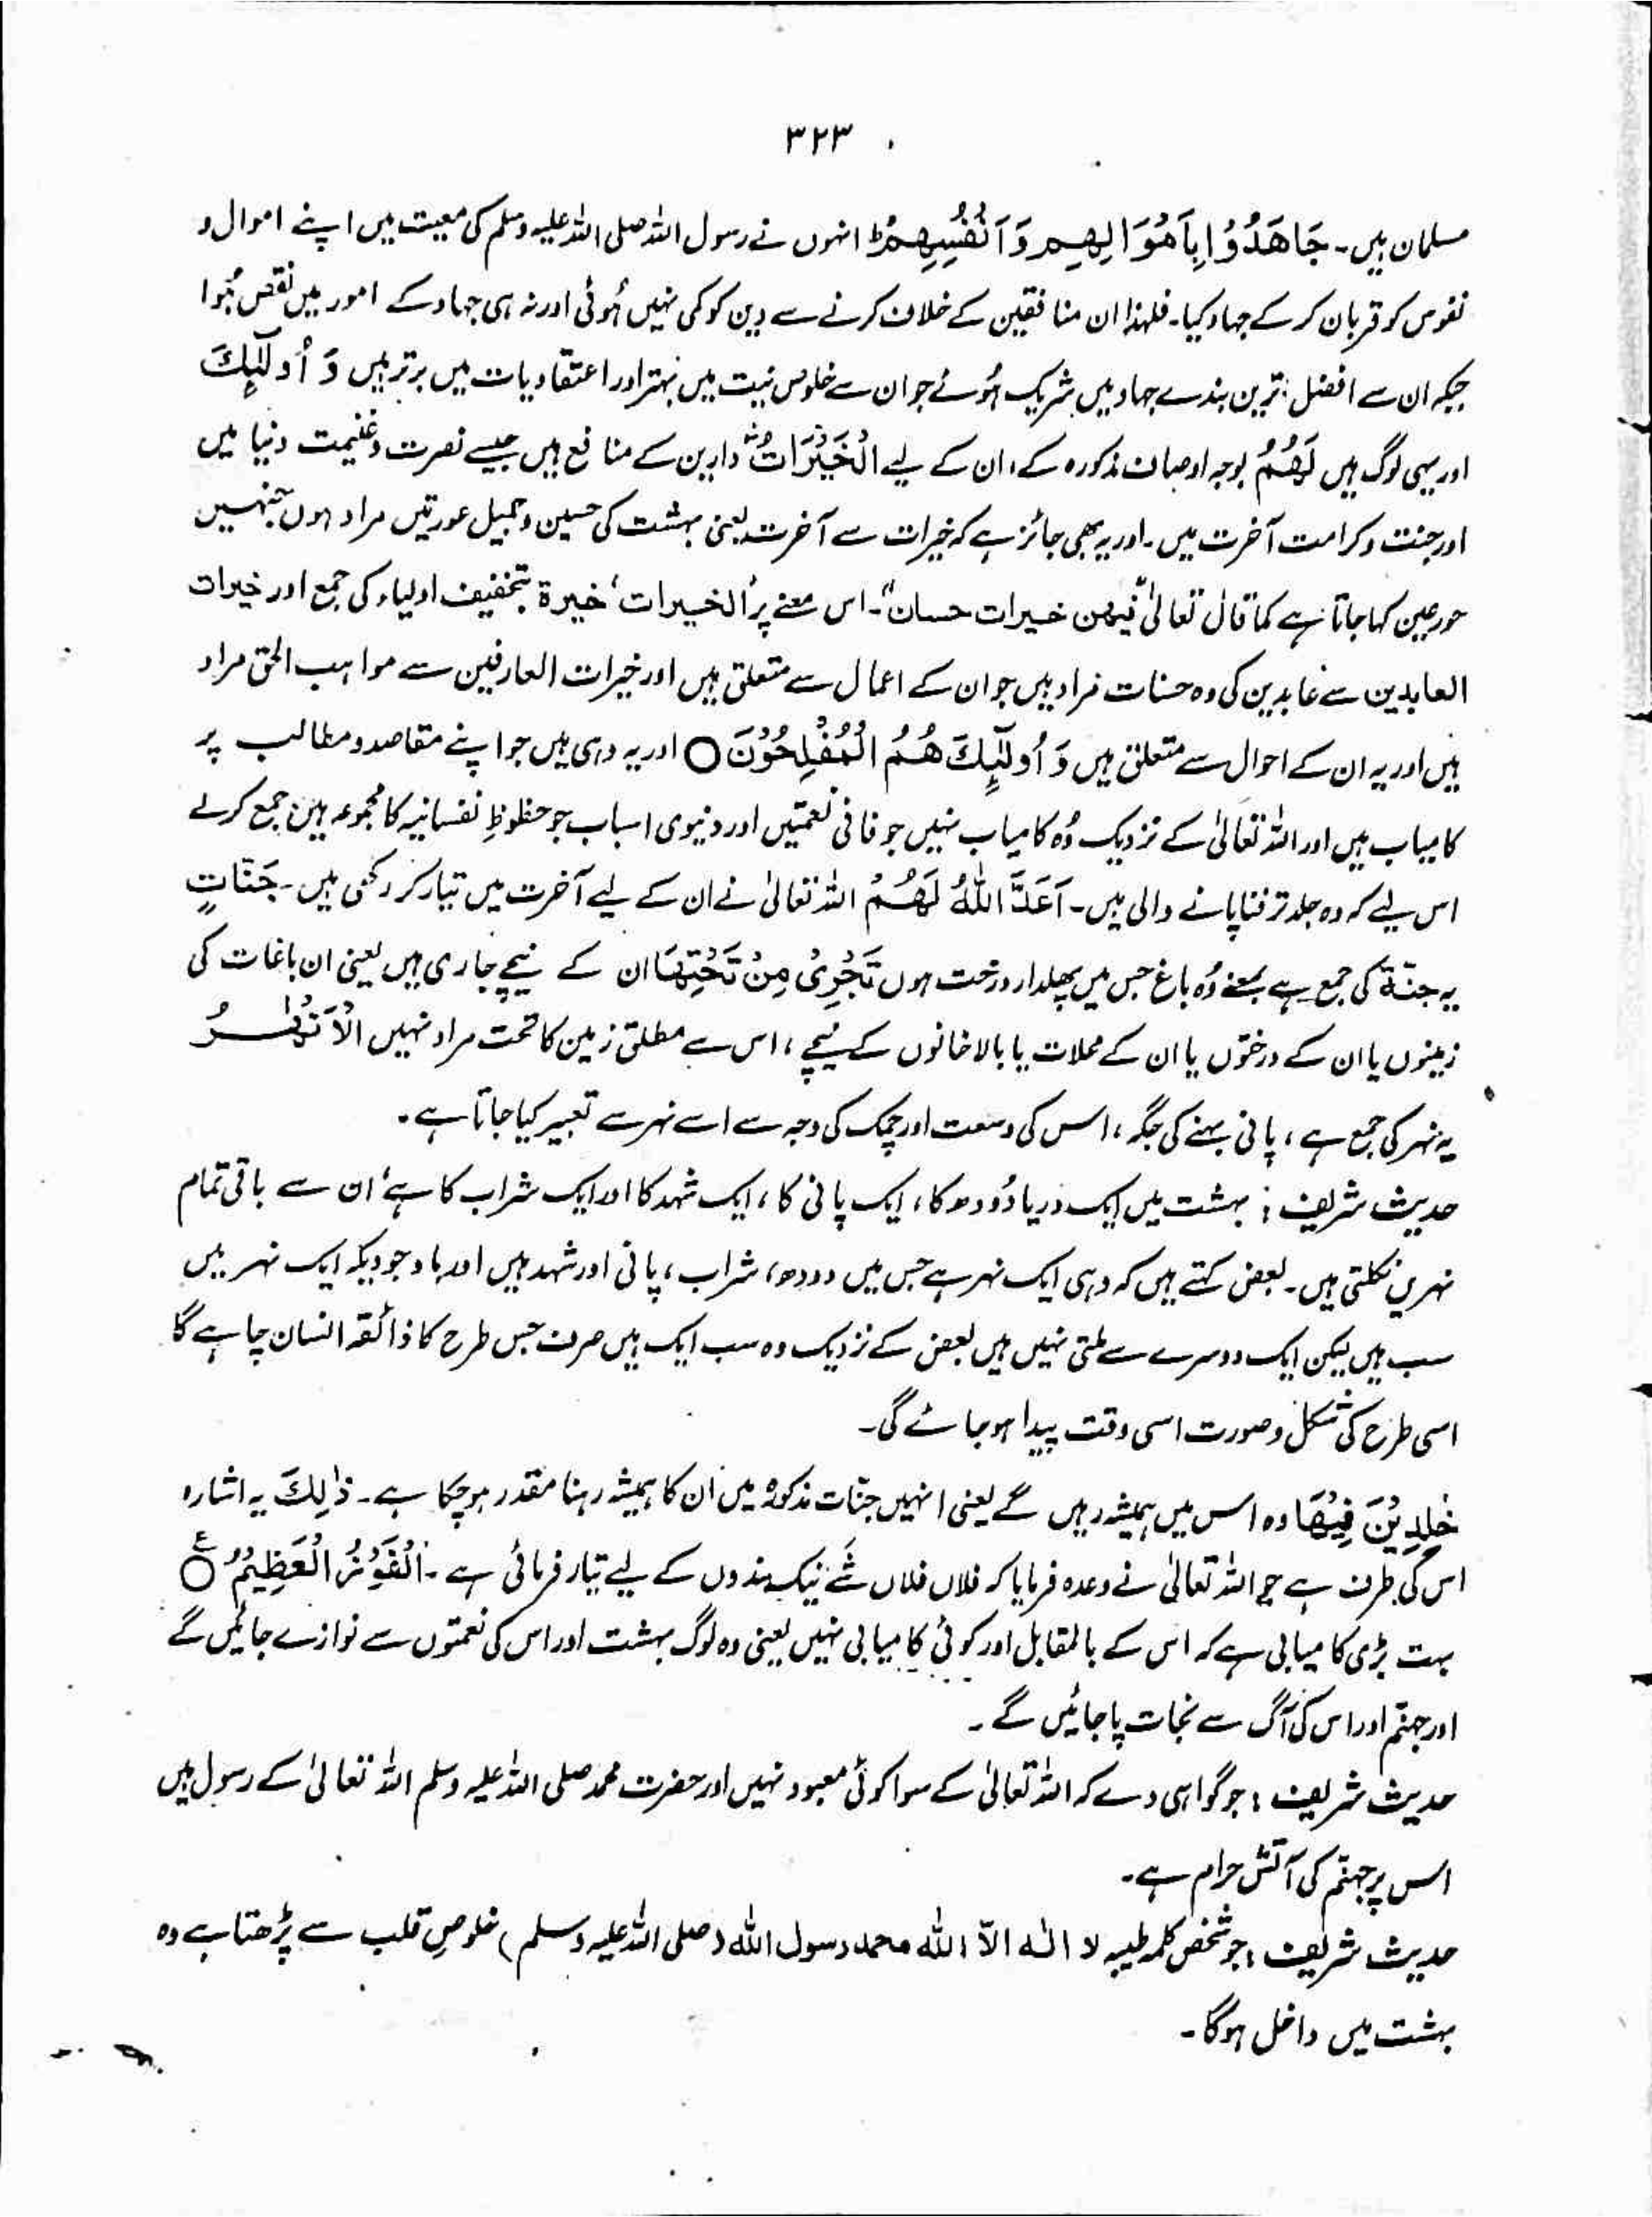 ۳۲۳
مسلمان ہیں۔ جَاهَدُوْا بِاَمْوَالِهِمْ وَ اَنْفُسِهِمْؕ انہوں نے رسول اللہ صلی اللہ علیہ وسلم کی معیت میں اپنے اموال و
نفوس کو قربان کر کے جہاد کیا۔ فلہٰذا ان منافقین کے خلاف کرنے سے دین کو کمی نہیں ہُوئی اور نہ ہی جہاد کے امور میں نقص ہُوا
جبکہ ان سے افضل ترین بندے جہاد میں شریک ہُوئے جو ان سے خلوص نیت میں بہتر اور اعتقادیات میں برتر ہیں وَ اُولٰٓئِكَ
اور یہی لوگ ہیں لَهُمُ بوجہ اوصاف مذکورہ کے، ان کے لیے الْخَيْرٰتُ دارین کے منافع ہیں جیسے نصرت و غنیمت دنیا میں
اور جنت و کرامت آخرت میں۔ اور یہ بھی جائز ہے کہ خیرات سے آخرت یعنی بہشت کی حسین و جمیل عورتیں مراد ہوں جنہیں
حور عین کہا جاتا ہے کما قال تعالیٰ "فیھن خیرات حسان"۔ اس معنے پر "الخیرات" خیرة بتخفیف اولیاء کی جمع اور خیرات
العابدین سے عابدین کی وہ حسنات مراد ہیں جو ان کے اعمال سے متعلق ہیں اور خیرات العارفین سے مواہب الحق مراد
ہیں اور یہ ان کے احوال سے متعلق ہیں وَ اُولٰٓئِكَ هُمُ الْمُفْلِحُوْنَ ○ اور یہ وہی ہیں جو اپنے مقاصد و مطالب پر
کامیاب ہیں اور اللہ تعالیٰ کے نزدیک وُہ کامیاب نہیں جو فانی نعمتیں اور دنیوی اسباب جو حظوظِ نفسانیہ کا مجموعہ ہیں جمع کرلے
اس لیے کہ وہ جلد تر فنا پانے والی ہیں۔ اَعَدَّ اللّٰهُ لَهُمْ اللہ تعالیٰ نے ان کے لیے آخرت میں تیار کر رکھی ہیں۔ جَنّٰتٍ
یہ جنّة کی جمع ہے بمعنے وُہ باغ جس میں پھلدار درخت ہوں تَجْرِیْ مِنْ تَحْتِهَا ان کے نیچے جاری ہیں یعنی ان باغات کی
زمینوں یا ان کے درختوں یا ان کے محلات یا بالا خانوں کے نیچے، اس سے مطلق زمین کا تحت مراد نہیں الْاَنْهٰرُ
یہ نہر کی جمع ہے، پانی بہنے کی جگہ، اس کی وسعت اور چمک کی وجہ سے اسے نہر سے تعبیر کیا جاتا ہے۔
حدیث شریف : بہشت میں ایک دریا دُودھ کا، ایک پانی کا، ایک شہد کا اور ایک شراب کا ہے، ان سے باقی تمام
نہریں نکلتی ہیں۔ بعض کہتے ہیں کہ وہی ایک نہر ہے جس میں دودھ، شراب، پانی اور شہد ہیں اور باوجودیکہ ایک نہر میں
سب ہیں لیکن ایک دوسرے سے ملتی نہیں ہیں بعض کے نزدیک وہ سب ایک ہیں صرف جس طرح کا ذائقہ انسان چاہے گا
اسی طرح کی شکل و صورت اسی وقت پیدا ہو جائے گی۔
خٰلِدِيْنَ فِيْهَا وہ اس میں ہمیشہ رہیں گے یعنی انہیں جنّات مذکورہ میں ان کا ہمیشہ رہنا مقدر ہو چکا ہے۔ ذٰلِكَ یہ اشارہ
اس کی طرف ہے جو اللہ تعالیٰ نے وعدہ فرمایا کہ فلاں فلاں شَے نیک بندوں کے لیے تیار فرمائی ہے۔ الْفَوْزُ الْعَظِيْمُ ○ ع
بہت بڑی کامیابی ہے کہ اس کے بالمقابل اور کوئی کامیابی نہیں یعنی وہ لوگ بہشت اور اس کی نعمتوں سے نوازے جائیں گے
اور جہنّم اور اس کی آگ سے نجات پا جائیں گے۔
حدیث شریف : جو گواہی دے کہ اللہ تعالیٰ کے سوا کوئی معبود نہیں اور حضرت محمد صلی اللہ علیہ وسلم اللہ تعالیٰ کے رسول ہیں
اس پر جہنّم کی آتش حرام ہے۔
حدیث شریف : جو شخص کلمہ طیبہ لا الٰہ الّا اللہ محمد رسول اللہ (صلی اللہ علیہ وسلم) خلوصِ قلب سے پڑھتا ہے وہ
بہشت میں داخل ہوگا۔